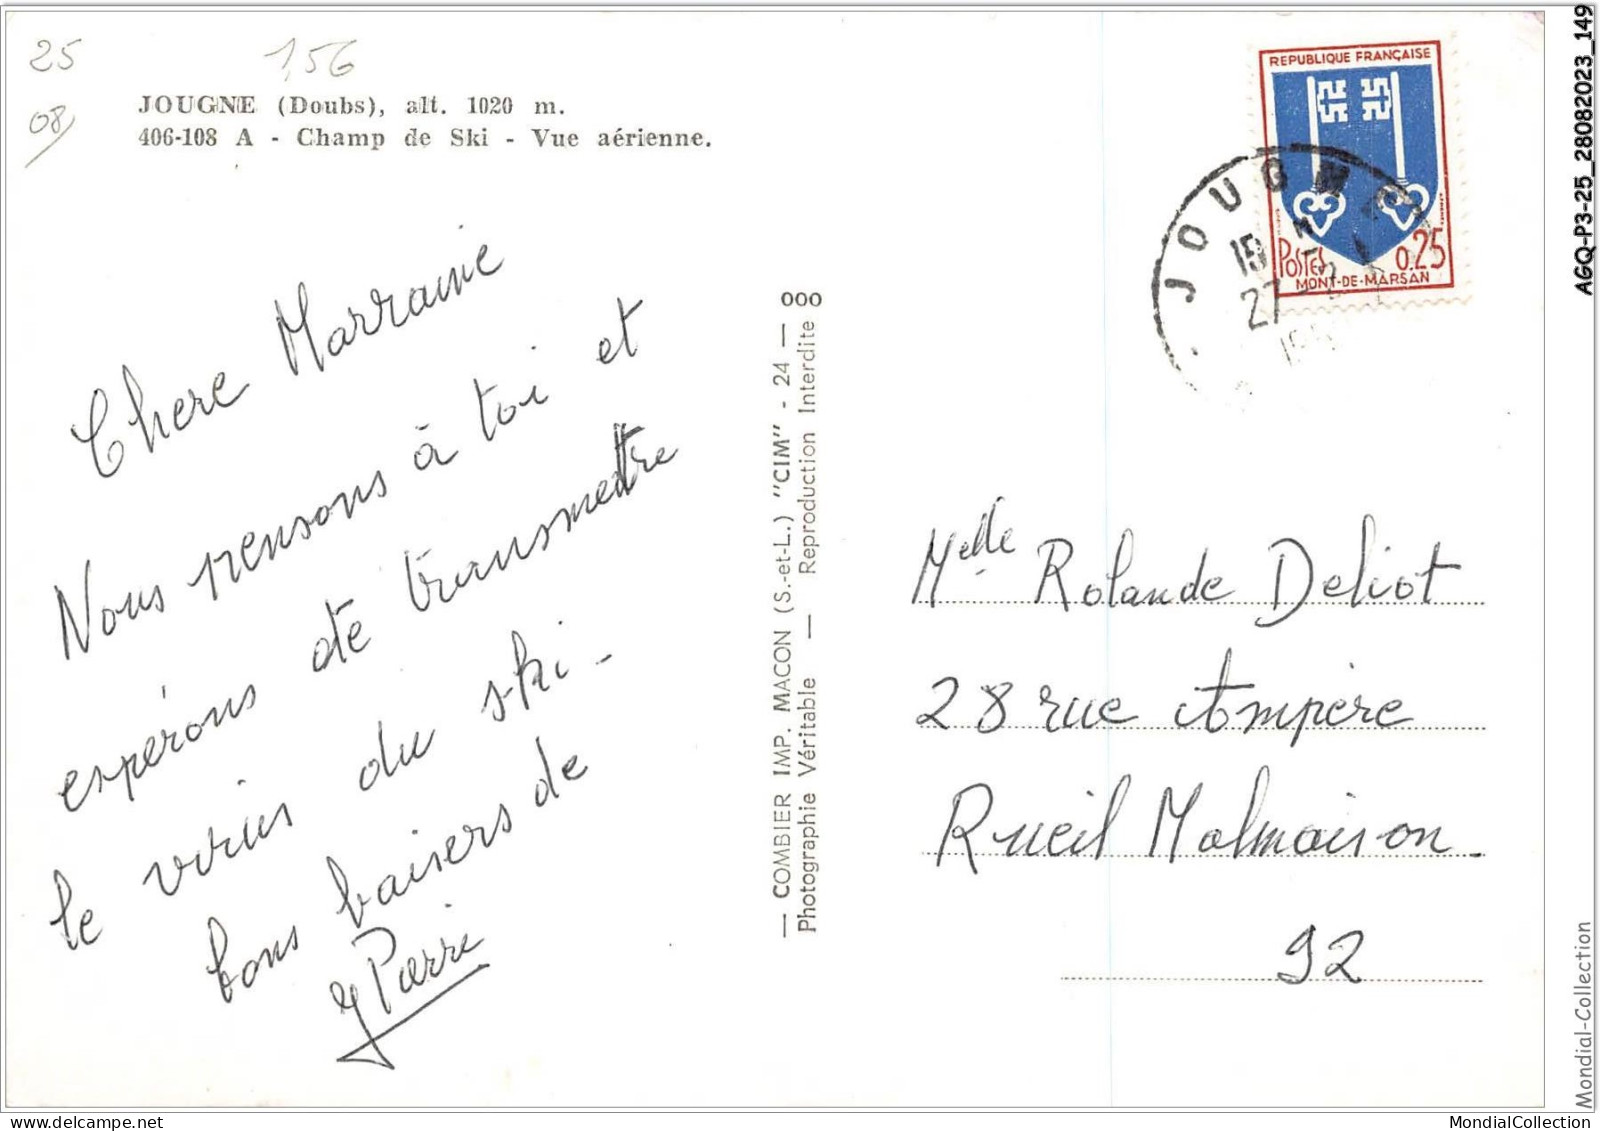 25
1,56
08
JOUGNE (Doubs), alt. 1020 m.
406-108 A - Champ de Ski - Vue aérienne.
Chere Marraine
Nous pensons à toi et
espérons de transmettre
le virus du ski -
bons baisers de
J Pierre
— COMBIER IMP. MACON (S.-et-L.) "CIM" - 24 — 000
Photographie Véritable — Reproduction Interdite
REPUBLIQUE FRANÇAISE
POSTES 0.25
MONT-DE-MARSAN
JOUGNE
27
Melle Rolande Deliot
28 rue Ampère
Rueil Malmaison
92
AGQ-P3-25_28082023_149
Mondial-Collection
MondialCollection